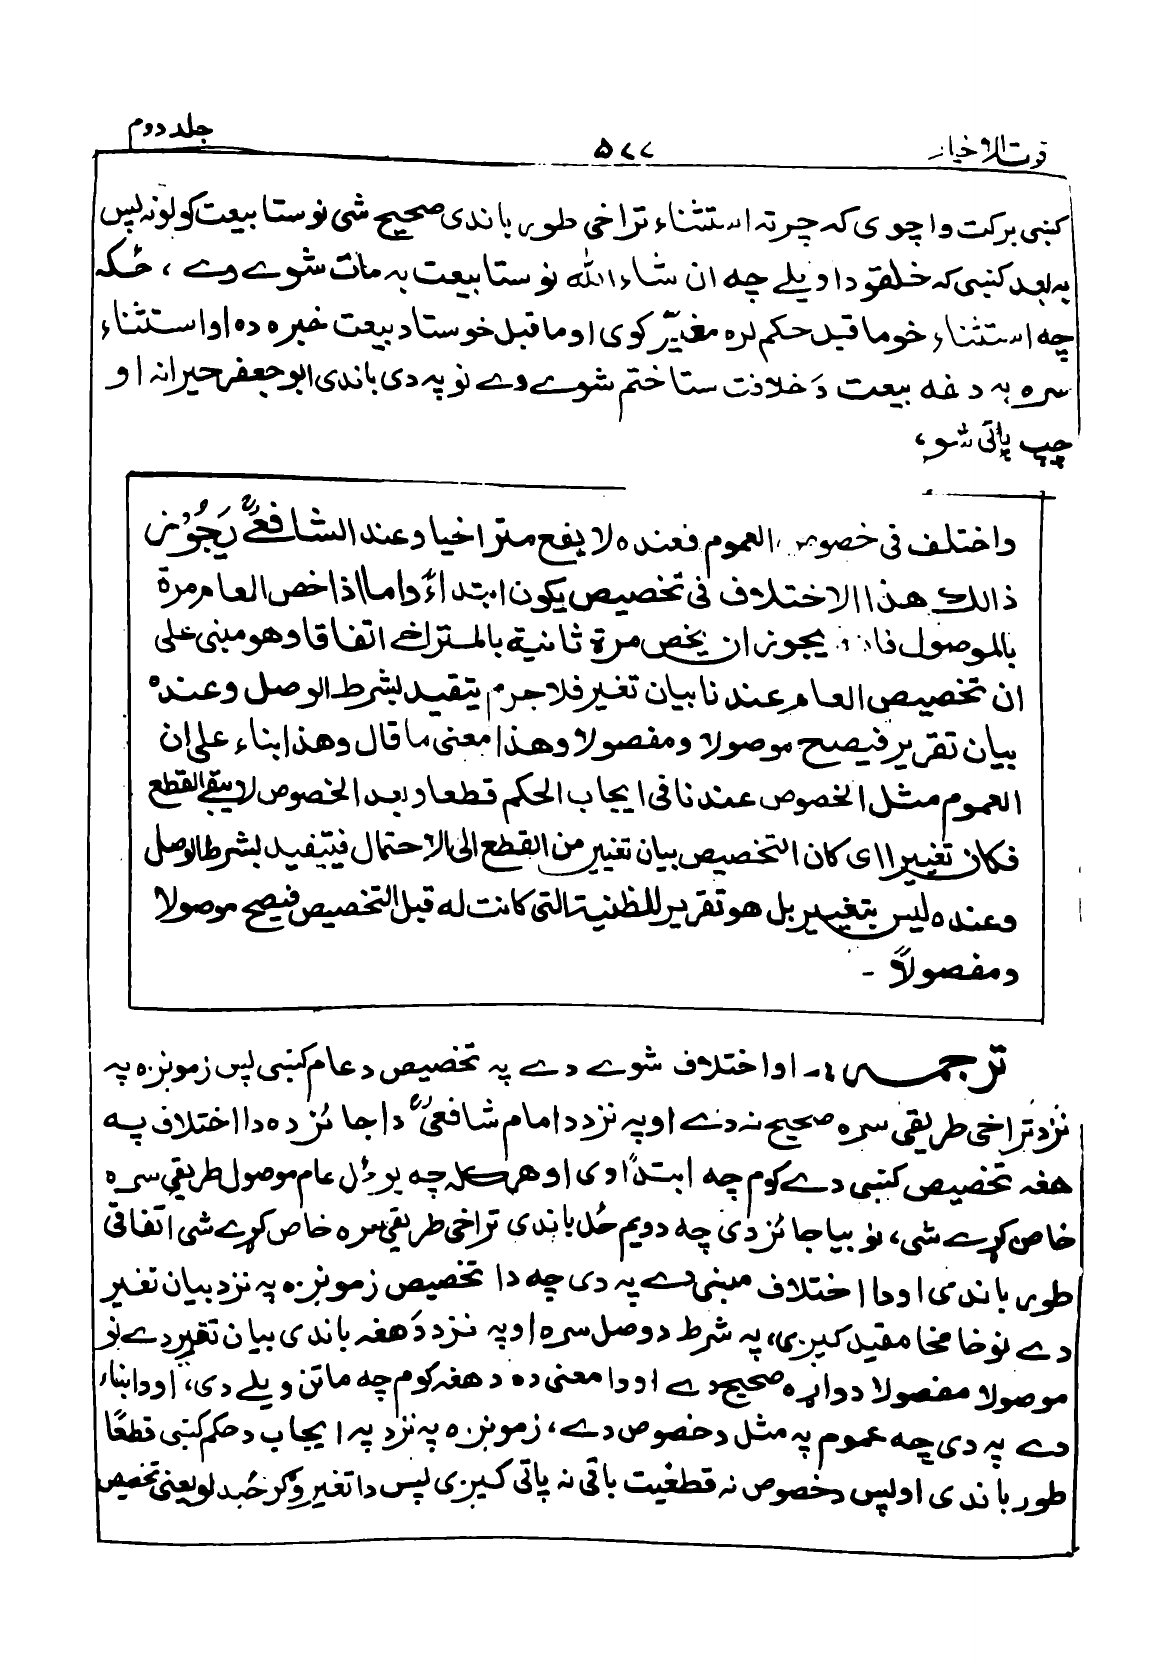 قوت الاخیار ۵۷۷ جلد دوم
کښی برکت واچوی که چرته استثناء تراخی طور باندی صحیح شی نو ستا بیعت کولو نه پس
په بعد کښی که خلقو دا ویلے چه ان شاء الله نو ستا بیعت به مات شوے وے ، ځکه
چه استثناء خو ما قبل حکم لره مغیّر کوی او ما قبل خو ستا د بیعت خبره ده او استثناء
سره به دغه بیعت دَ خلافت ستا ختم شوے وے نو په دی باندی ابو جعفر حیرانه او
چپ پاتی شو،
واختلف فی خصوص العموم فعنده لا یقع متراخیا وعند الشافعیؒ یَجُوْز
ذالك هذا الاختلاف فی تخصیص یکون ابتداءً واما اذا خص العام مرة
بالموصول فانه یجوز ان یخص مرة ثانیة بالمتراخی اتفاقا وهو مبنی علی
ان تخصیص العام عندنا بیان تغیر فلا جرم یتقید بشرط الوصل وعنده
بیان تقریر فیصح موصولا ومفصولا وهذا معنی ما قال وهذا بناء علی ان
العموم مثل الخصوص عندنا فی ایجاب الحکم قطعا وبعد الخصوص لا یبقے القطع
فکان تغییرا ای کان التخصیص بیان تغییر من القطع الی الاحتمال فیتقید بشرط الوصل
وعنده لیس بتغییر بل هو تقریر للظنیة التی کانت له قبل التخصیص فیصح موصولا
ومفصولاً -
ترجمه :- او اختلاف شوے دے په تخصیص د عام کښی پس زمونږه په
نزد تراخی طریقی سره صحیح نه دے او په نزد د امام شافعیؒ دا جائز ده دا اختلاف په
هغه تخصیص کښی دے کوم چه ابتداً وی او هر کله چه یو ځل عام موصول طریقی سره
خاص کړے شی، نو بیا جائز دی چه دویم ځل باندی تراخی طریقی سره خاص کړے شی اتفاقی
طور باندی او دا اختلاف مبنی دے په دی چه دا تخصیص زمونږه په نزد بیان تغیر
دے نو خامخا مقید کیږی، په شرط د وصل سره او په نزد دَ هغه باندی بیان تقریر دے نو
موصولا مفصولا دواړه صحیح دے او دا معنی ده د هغه کوم چه ماتن ویلے دی، او دا بناء
دے په دی چه عموم په مثل د خصوص دے، زمونږه په نزد په ایجاب د حکم کښی قطعًا
طور باندی او پس د خصوص نه قطعیت باقی نه پاتی کیږی پس دا تغیر وګرځیدلو یعنی تخصیص